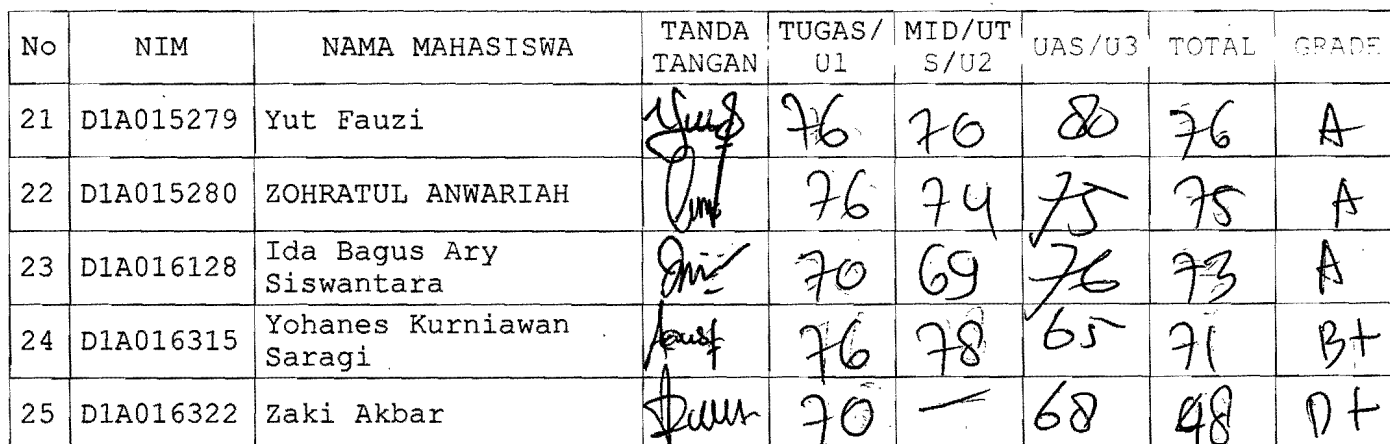 No NIM NAMA MAHASISWA TANDA TANGAN TUGAS/ U1 MID/UT S/U2 UAS/U3 TOTAL GRADE
21 D1A015279 Yut Fauzi 76 70 80 76 A
22 D1A015280 ZOHRATUL ANWARIAH 76 74 75 75 A
23 D1A016128 Ida Bagus Ary Siswantara 70 69 76 73 A
24 D1A016315 Yohanes Kurniawan Saragi 76 78 65 71 B+
25 D1A016322 Zaki Akbar 70 — 68 48 D+